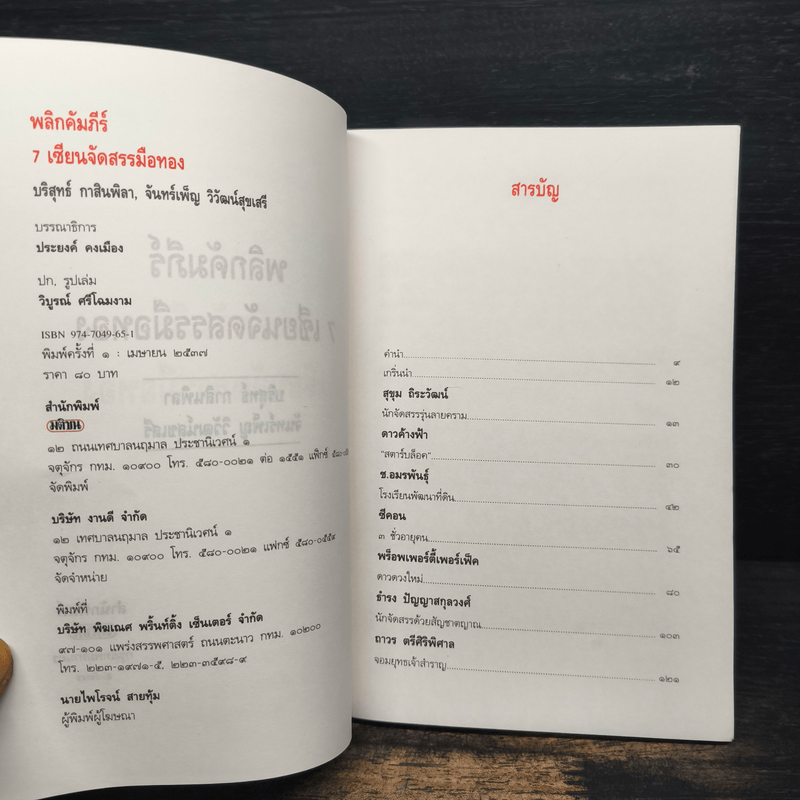 พลิกคัมภีร์
7 เซียนจัดสรรมือทอง
บริสุทธ์ กาสินพิลา, จันทร์เพ็ญ วิวัฒน์สุขเสรี
บรรณาธิการ
ประยงค์ คงเมือง
ปก, รูปเล่ม
วิบูรณ์ ศรีโฉมงาม
ISBN 974-7049-65-1
พิมพ์ครั้งที่ ๑ : เมษายน ๒๕๓๗
ราคา ๘๐ บาท
สำนักพิมพ์
มติชน
๑๒ ถนนเทศบาลนฤมาล ประชานิเวศน์ ๑
จตุจักร กทม. ๑๐๙๐๐ โทร. ๕๘๐-๐๐๒๑ ต่อ ๑๕๕๑ แฟ็กซ์
จัดพิมพ์
บริษัท งานดี จำกัด
๑๒ เทศบาลนฤมาล ประชานิเวศน์ ๑
จตุจักร กทม. ๑๐๙๐๐ โทร. ๕๘๐-๐๐๒๑ แฟกซ์ ๕๘๐-๐๕๕๙
จัดจำหน่าย
พิมพ์ที่
บริษัท พิฆเณศ พริ้นท์ติ้ง เซ็นเตอร์ จำกัด
๙๗-๑๐๑ แพร่งสรรพศาสตร์ ถนนตะนาว กทม. ๑๐๒๐๐
โทร. ๒๒๓-๑๙๗๑-๕, ๒๒๓-๓๕๙๘-๙
นายไพโรจน์ สายทุ้ม
ผู้พิมพ์ผู้โฆษณา
สารบัญ
คำนำ ๙
เกริ่นนำ ๑๒
สุขุม ถิระวัฒน์
นักจัดสรรรุ่นลายคราม ๑๓
ดาวค้างฟ้า
"สตาร์บล็อค" ๓๐
ช.อมรพันธุ์
โรงเรียนพัฒนาที่ดิน ๔๒
ซีคอน
๓ ชั่วอายุคน ๖๕
พร็อพเพอร์ตี้เพอร์เฟ็ค
ดาวดวงใหม่ ๘๐
ธำรง ปัญญาสกุลวงศ์
นักจัดสรรด้วยสัญชาตญาณ ๑๐๓
ถาวร ตรีศิริพิศาล
จอมยุทธเจ้าสำราญ ๑๒๑